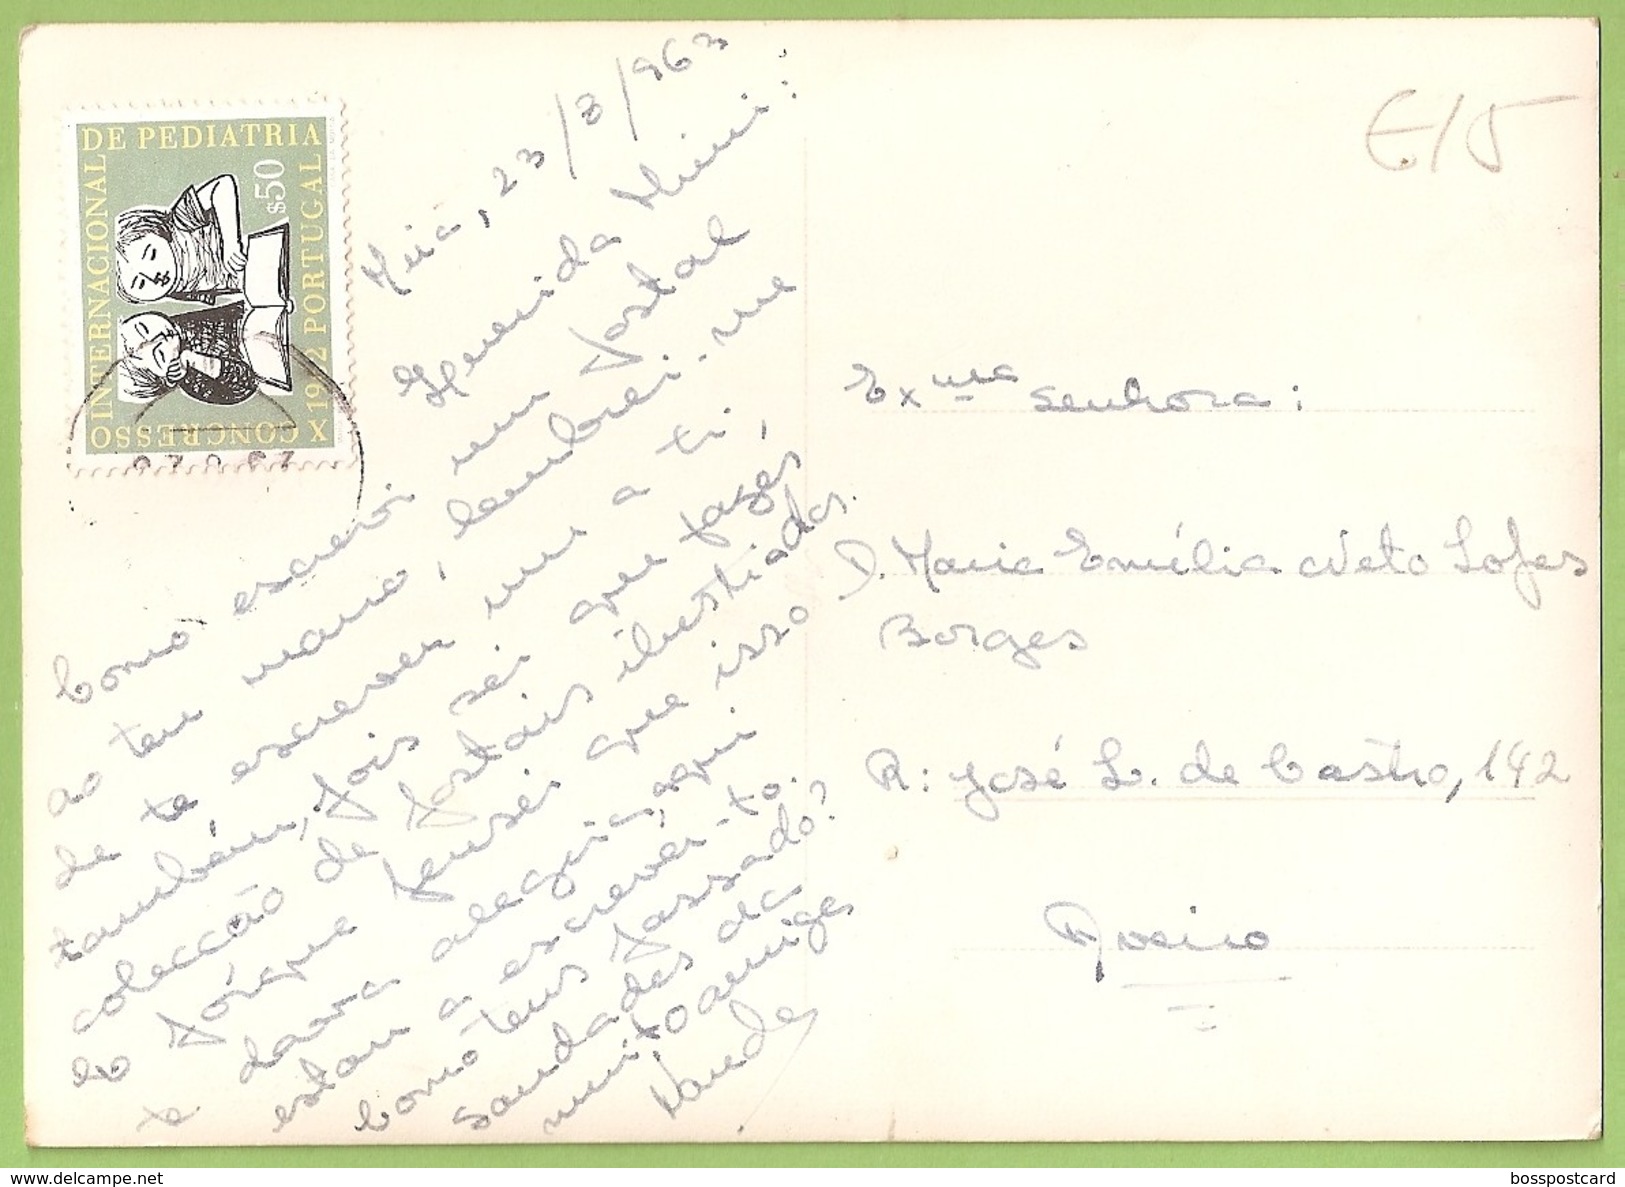 X CONGRESSO INTERNACIONAL DE PEDIATRIA
1962 PORTUGAL
$50
23/3/963
Querida Mimi:
Como escrevi um postal
ao teu mano, lembrei-me
de te escrever um a ti
também, pois sei que fazes
colecção de postais ilustrados.
porque pensei que isso
te dava alegria, aqui
estou a escrever-to.
Como tens passado?
Saudades da
muito amiga
E15
Exma senhora:
D. Maria Emélia Neto Lopes
Borges
R: José L. de Castro, 142
Aveiro
bosspostcard